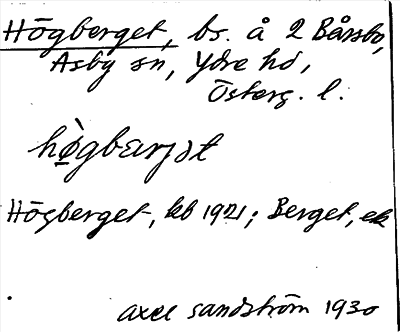 Högberget, bs. å 2 Bårsbo,
Asby sn, Ydre hd,
Österg. l.
hø̀gbærjət
Högberget, kb 1921; Berget, ek
Axel Sandström 1930